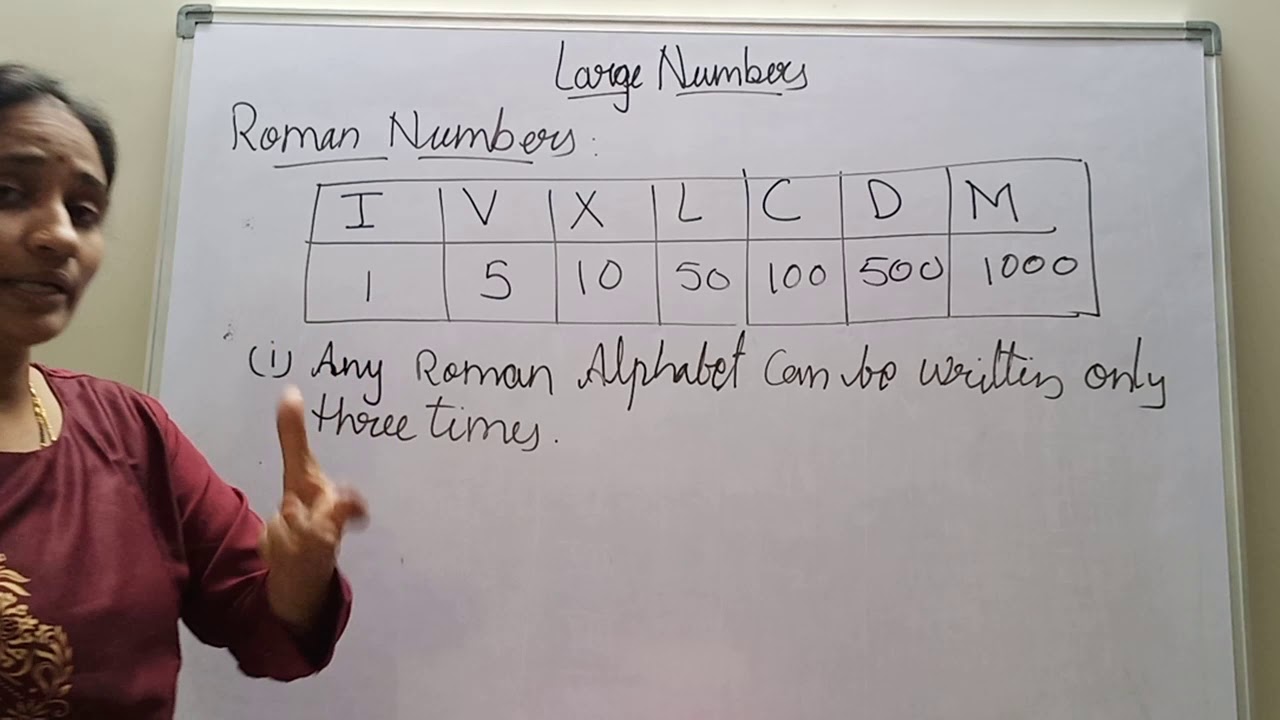 Large Numbers
Roman Numbers:
I V X L C D M
1 5 10 50 100 500 1000
(i) Any Roman Alphabet Can be written only
three times.